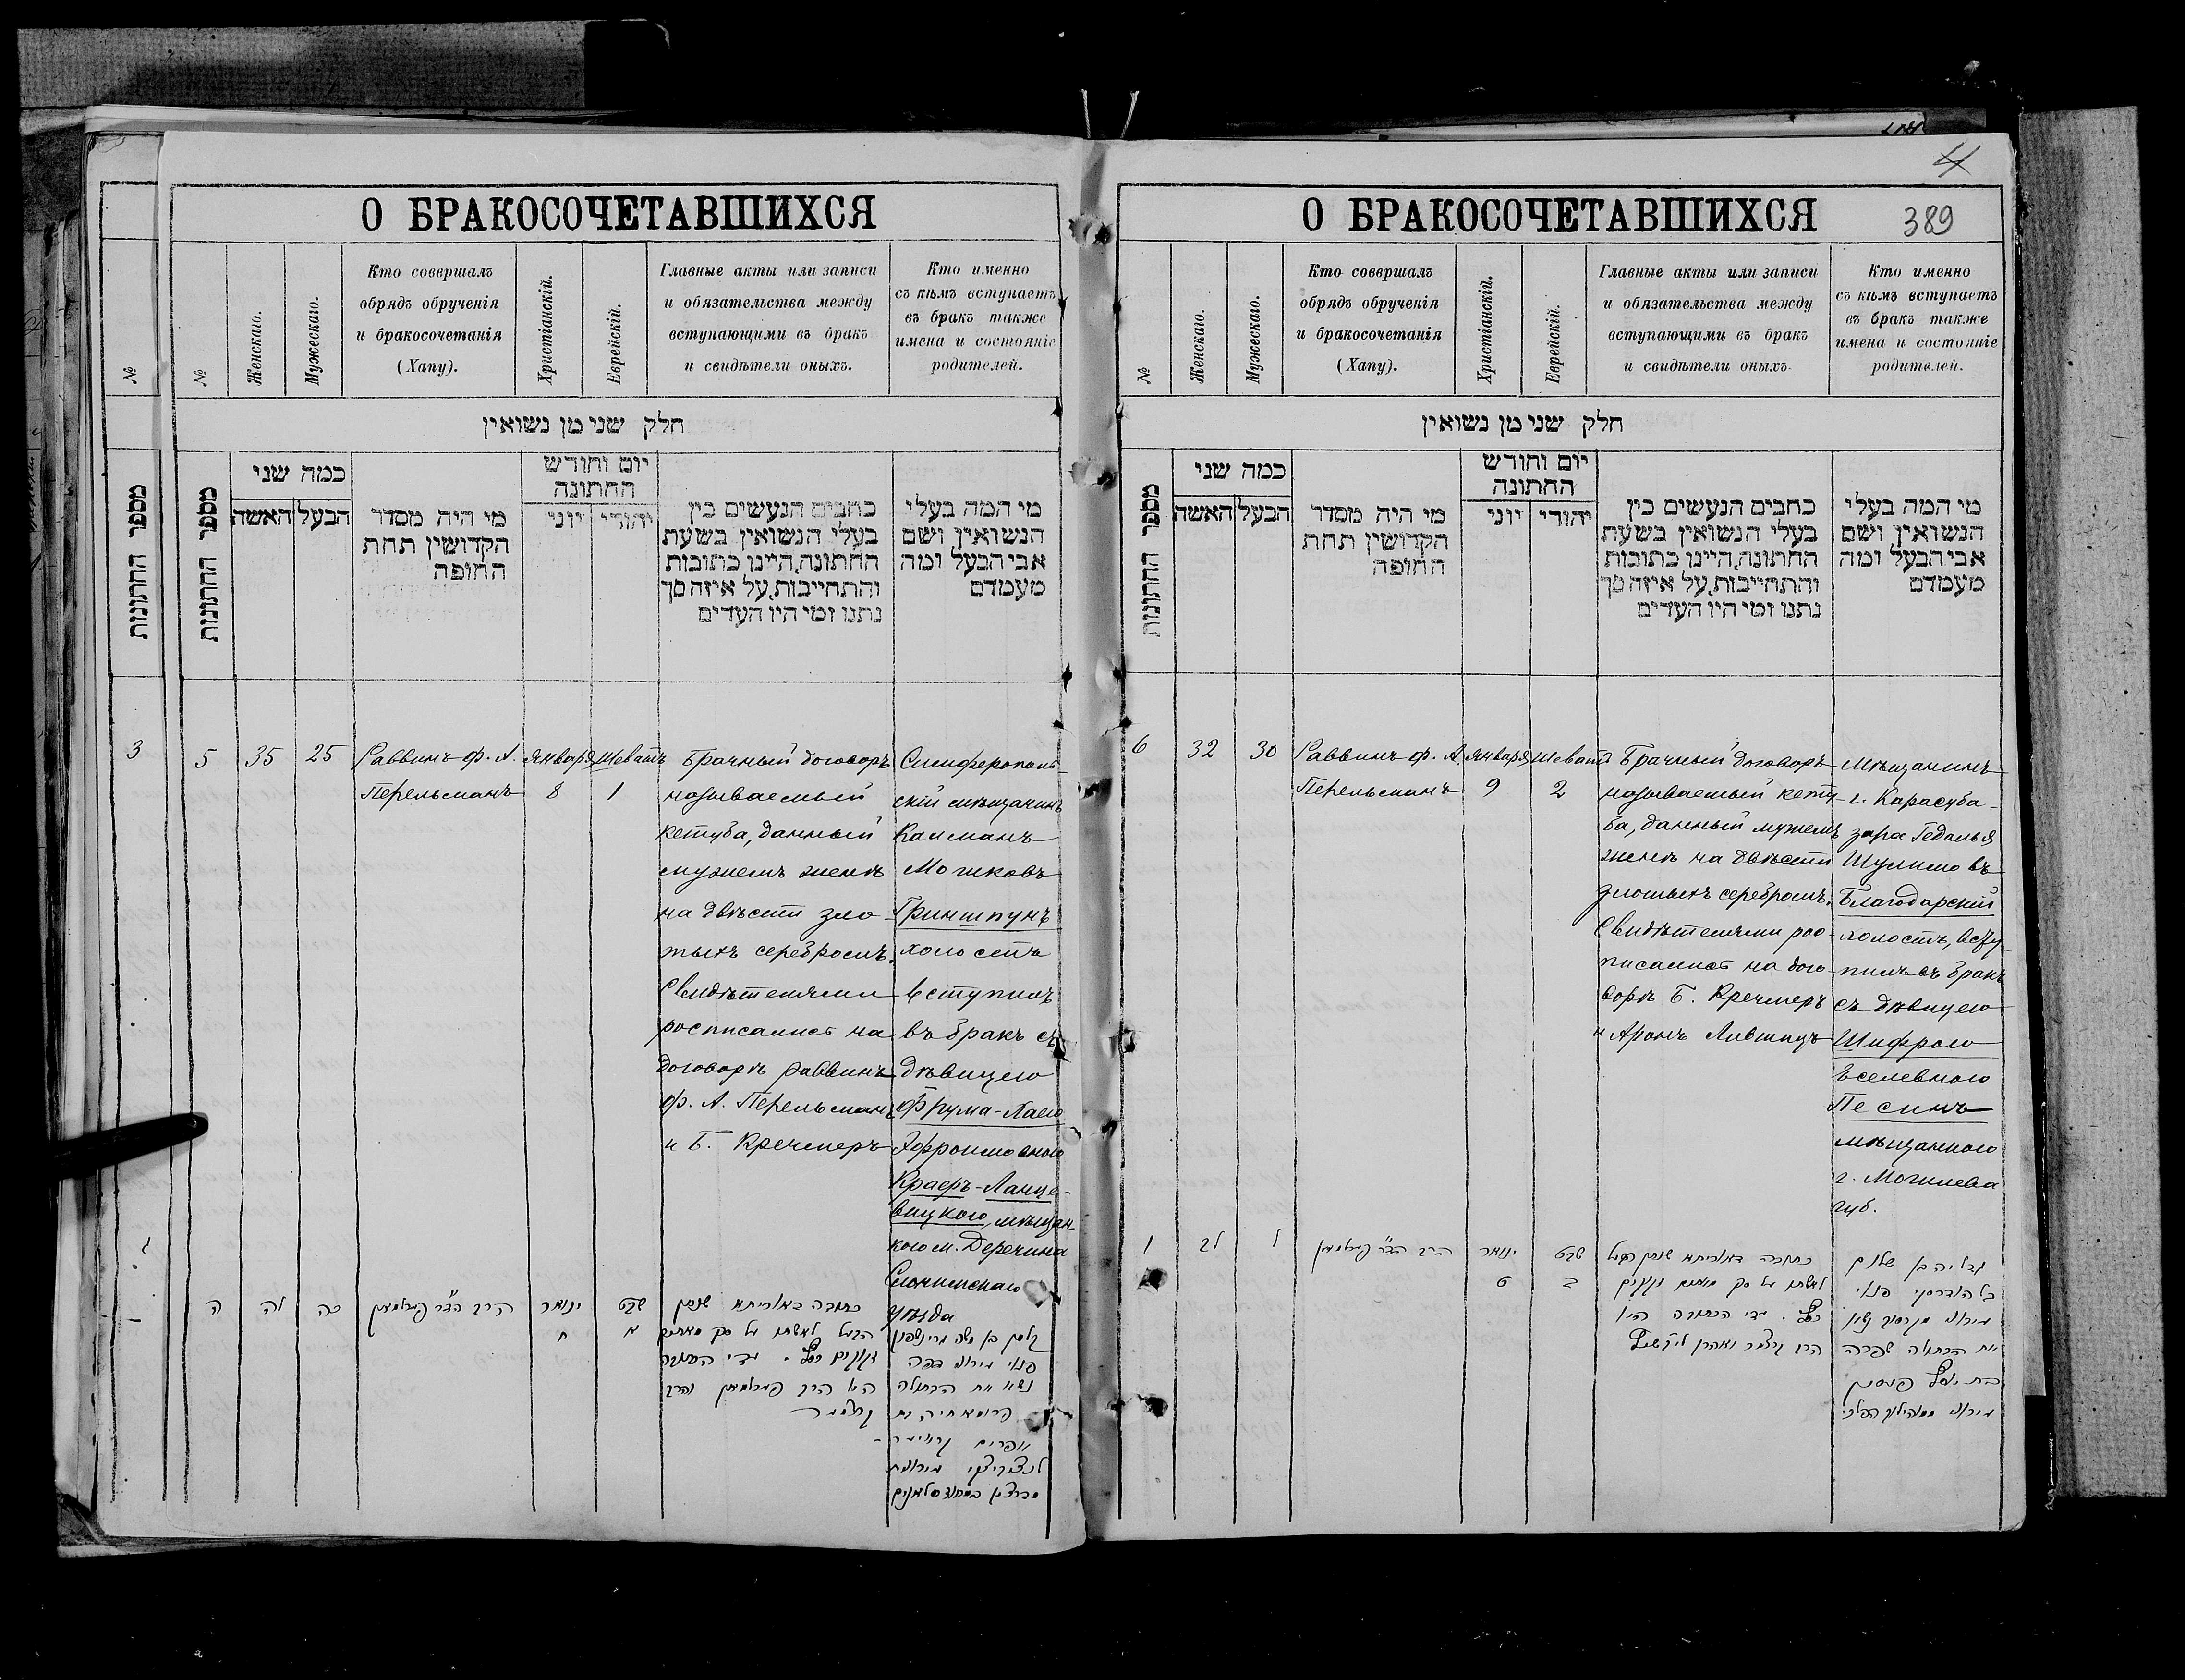 4
389
О БРАКОСОЧЕТАВШИХСЯ
№
№
Женскаго.
Мужескаго.
Кто совершалъ
обрядъ обрученія
и бракосочетанія
(Хапу).
Христіанскій.
Еврейскій.
Главные акты или записи
и обязательства между
вступающими въ бракъ
и свидѣтели оныхъ.
Кто именно
съ кѣмъ вступаетъ
въ бракъ также
имена и состояніе
родителей.
חלק שני מן נשואין
מספר החתונות
מספר החתונות
כמה שני
האשה
הבעל
מי היה מסדר
הקדושין תחת
החופה
יום וחודש
החתונה
יוני
יהודי
כתבים הנעשים בין
בעלי הנשואין בשעת
החתונה, היינו כתובות
והתחייבות, על איזה סך
נתנו ומי היו העדים
מי המה בעלי
הנשואין ושם
אבי הבעל ומה
מעמדם
3
5
35
25
Раввинъ Ф. А.
Перельманъ
Января
8
Шеватъ
1
Брачный договоръ
называемый
кетуба, данный
мужемъ женѣ
на двѣсти зло-
тыхъ серебромъ.
Свидѣтелями
росписались на
договорѣ раввинъ
Ф. А. Перельманъ
и Б. Кречмеръ
Симферополь-
скій мѣщанинъ
Калманъ
Мошковъ
Гриншпунъ
холостъ
вступилъ
въ бракъ съ
дѣвицею
Фрума-Хаею
Эфроимовною
Краеръ-Ланце-
вицкою, мѣщан-
кою м. Деречина
Слонимскаго
уѣзда
ה
לה
כה
הרב הצ"ר פערלמאן
ינואר
ח
שבט
א
כתובה דאוריתא שנתן
הבעל לאשתו על סך מאתים
זקוקים כסף. עדי הכתובה
היו הרב פערלמאן והרב
קרצמר
קלמן בן משה גרינשפון
פנוי עירוני
נשא את הבתולה
פרומא חיה בת
אפרים קראיער
О БРАКОСОЧЕТАВШИХСЯ
№
Женскаго.
Мужескаго.
Кто совершалъ
обрядъ обрученія
и бракосочетанія
(Хапу).
Христіанскій.
Еврейскій.
Главные акты или записи
и обязательства между
вступающими въ бракъ
и свидѣтели оныхъ.
Кто именно
съ кѣмъ вступаетъ
въ бракъ также
имена и состояніе
родителей.
חלק שני מן נשואין
מספר החתונות
כמה שני
האשה
הבעל
מי היה מסדר
הקדושין תחת
החופה
יום וחודש
החתונה
יוני
יהודי
כתבים הנעשים בין
בעלי הנשואין בשעת
החתונה, היינו כתובות
והתחייבות, על איזה סך
נתנו ומי היו העדים
מי המה בעלי
הנשואין ושם
אבי הבעל ומה
מעמדם
6
32
30
Раввинъ Ф. А.
Перельманъ
Января
9
Шеватъ
2
Брачный договоръ
называемый кету-
ба, данный мужемъ
женѣ на двѣсти
злотыхъ серебромъ.
Свидѣтелями рос-
писались на дого-
ворѣ Б. Кречмеръ
и Аронъ Лившицъ
Мѣщанинъ
г. Карасуба-
зара Гедалья
Шулимовъ
Благодарскій
холостъ, всту-
пилъ въ бракъ
съ дѣвицею
Шифрою
Іоселевною
Песинъ
мѣщанкою
г. Могилева
губ.
ו
לב
ל
הרב הצ"ר פערלמאן
ינואר
ט
שבט
ב
כתובה דאוריתא שנתן הבעל
לאשתו על סך מאתים זקוקים
כסף. עדי הכתובה היו
הרב קרצמר ואהרן ליפשיץ
גדליה בן שלום
פנוי
עירוני
את הבתולה שפרה
בת יוסף פעסין